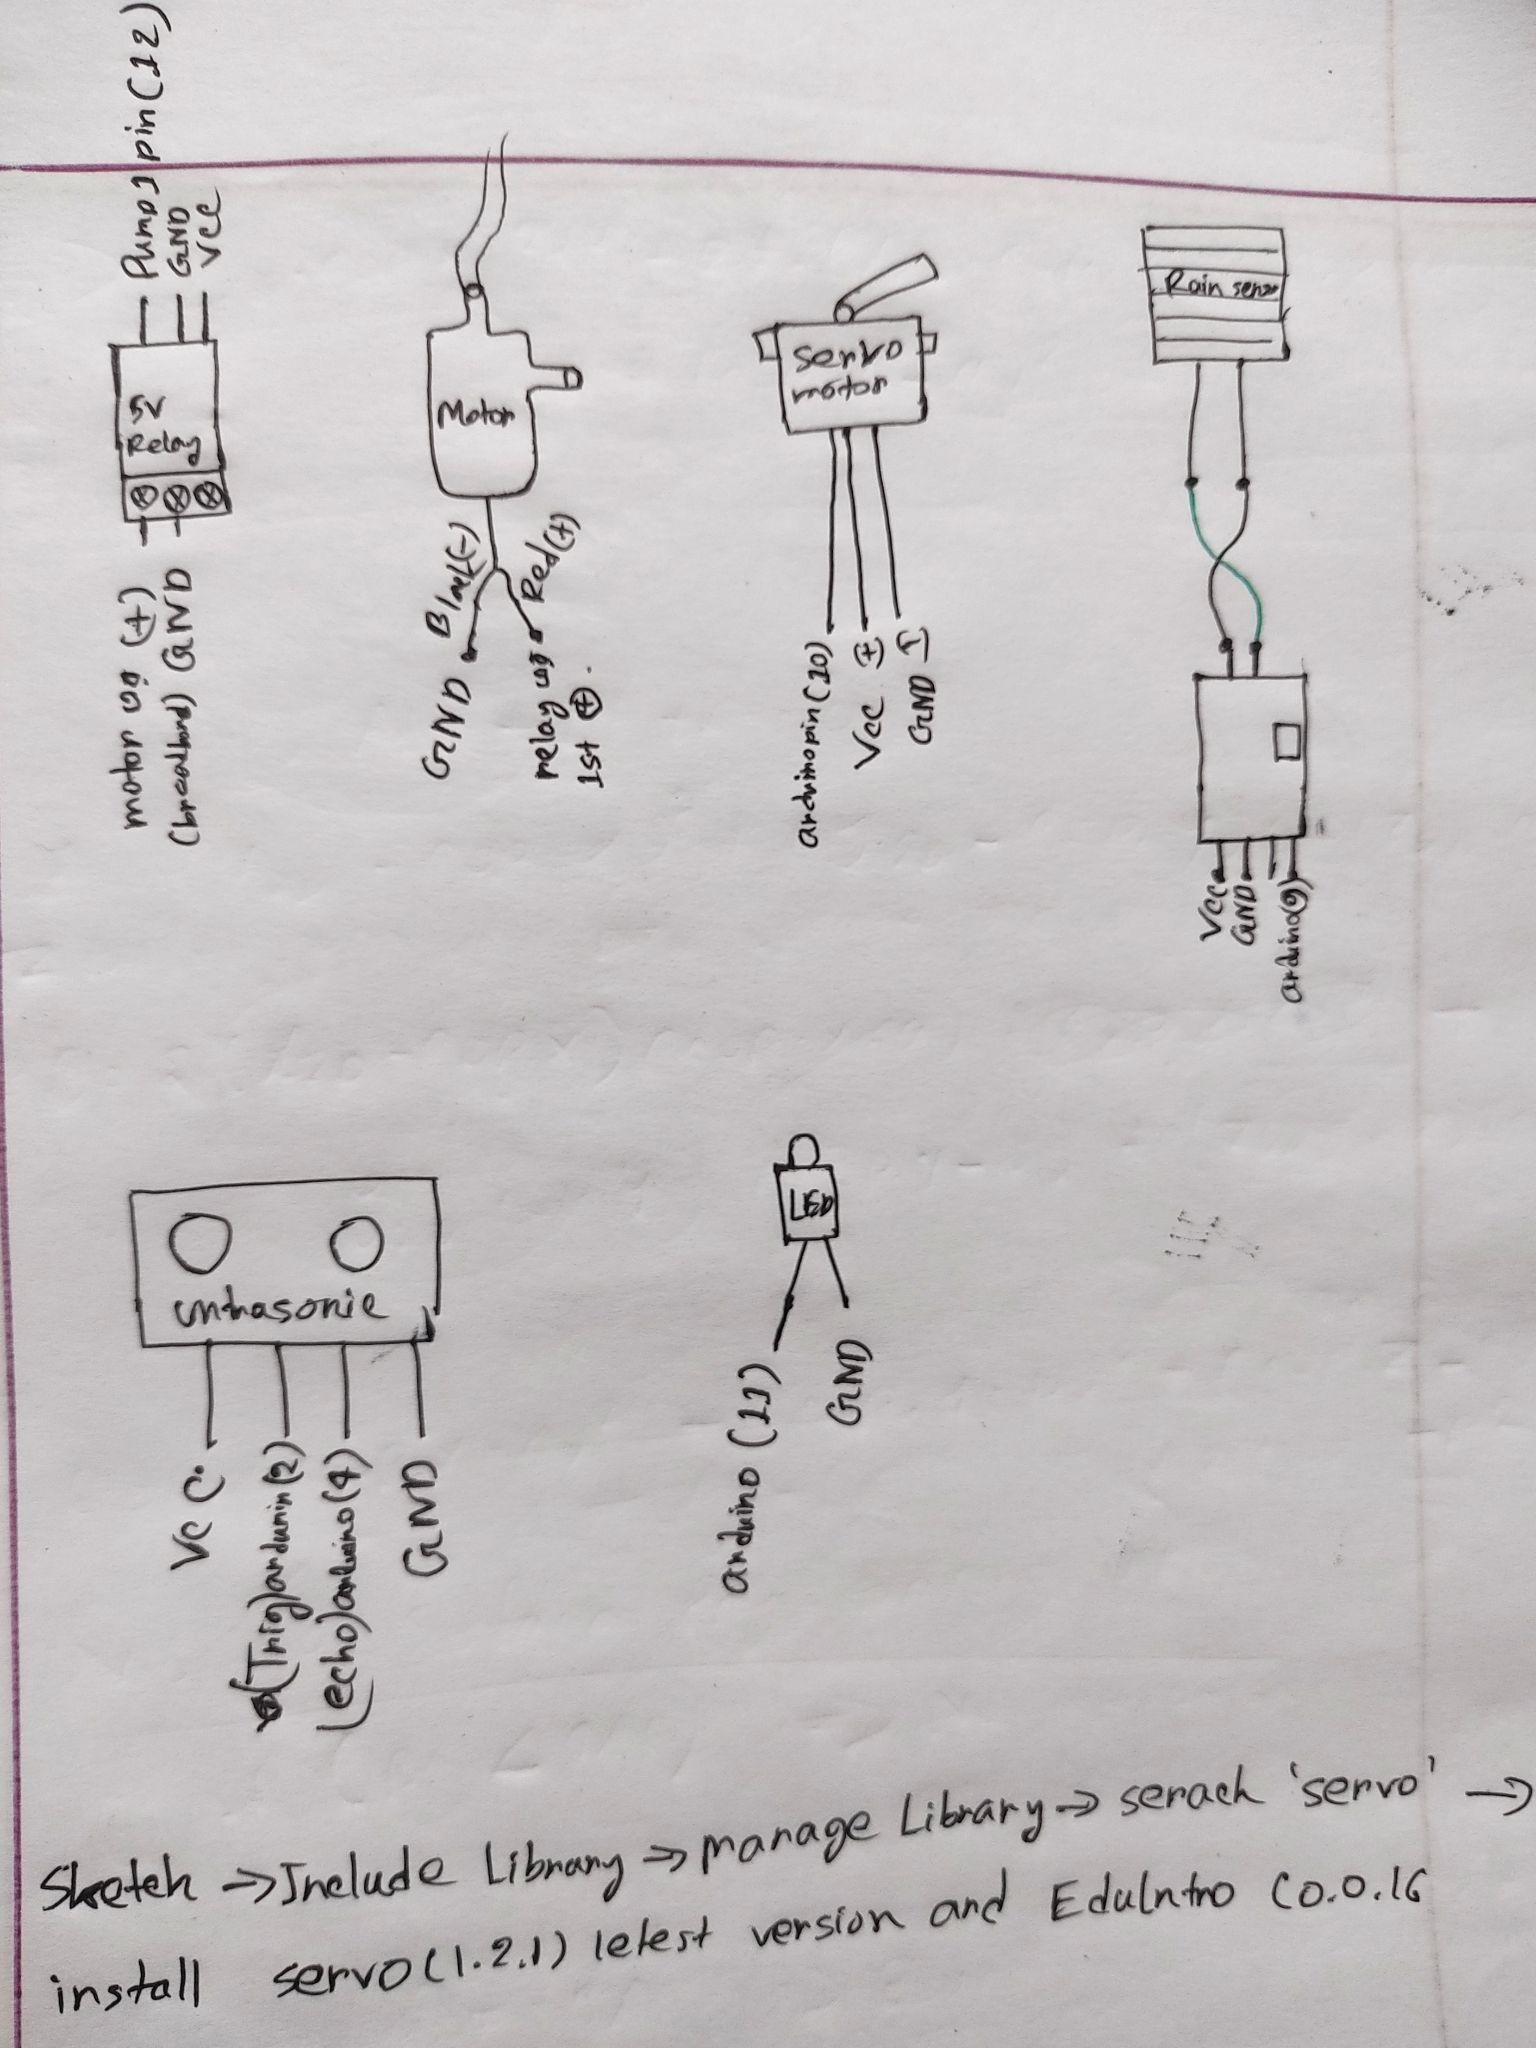 Pump1 pin(12)
GND
VCC
5V
Relay
motor এর (+)
(breadboard) GND
Motor
Black(-)
GND
Red(+)
relay এর
1st (+).
servo
motor
arduino pin(10)
Vcc (+)
GND (-)
Rain senso
Vcc
GND
arduino(9)
untrasonic
Vcc.
(Trig)ardunin(2)
(echo)arduino(4)
GND
LED
arduino (11)
GND
Sketch → Include Library → manage Library → serach 'servo' →
install servo(1.2.1) letest version and EduIntro (0.0.16